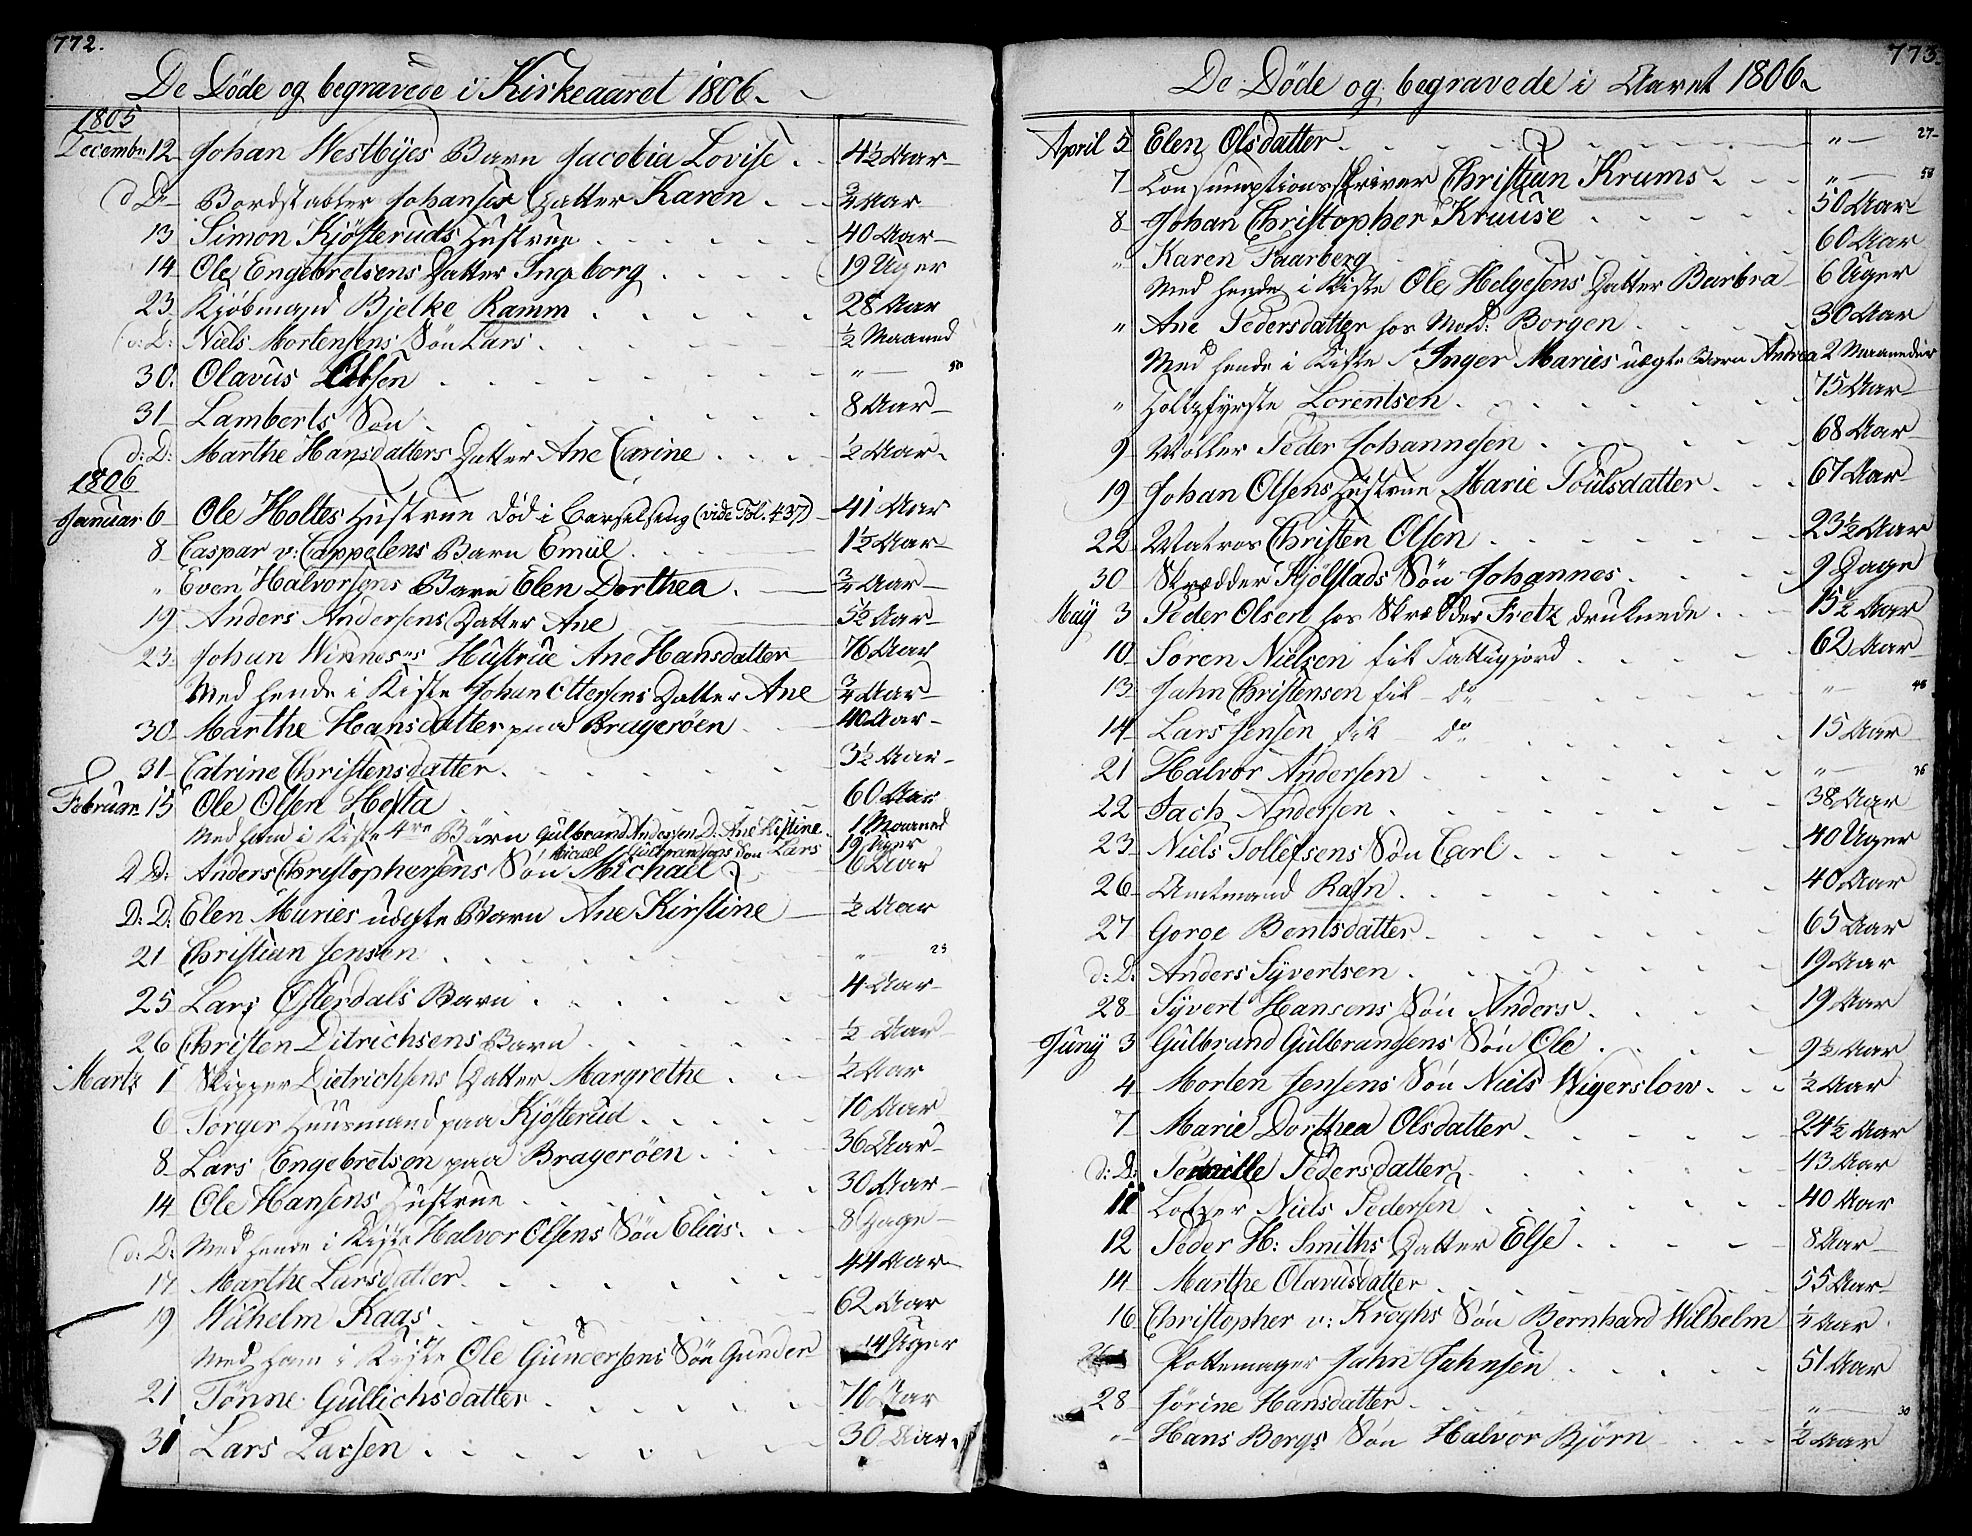 772.
De Døde og begravede i Kirkeaaret 1806.
1805
Decembr 12 Johan Westbÿes Barn Jacobia Lovise 4½ Aar
d D. Bordstabler Johanses Datter Karen ¾ Aar
13 Simon Kjøsteruds Hustrue 40 Aar
14 Ole Engebretsens Datter Ingeborg 19 Uger
23 Kjøbmand Bjelke Ramm 28 Aar
d: D: Niels Mortensens Søn Lars ½ Maaned
30. Olavus Olsen " 50
31 Lamberts Søn 8 Aar
d: D: Marthe Hansdatters Datter Ane Carine ½ Aar
1806
Januar 6 Ole Holtes Hustrue død i Barselseng (vide Fol. 437) 41 Aar
8 Caspar v: Cappelens Barn Emil 1½ Aar
" Even Halvorsens Barn Elen Dorthea ¾ Aar
19 Anders Andersens Datter Ane 5½ Aar
23 Johan Winnes Hustrue Ane Hansdatter 76 Aar
Med hende i Kiste Johan Ottersens Datter Ane ¾ Aar
30 Marthe Hansdatter paa Bragerøen 40 Aar
31 Catrine Christensdatter 3½ Aar
Februar 15 Ole Olsen Hofta 60 Aar
Med ham i Kiste Børn Gulbrand Andersen D. Ane Kistine 1 Maaned
Gulbrandsens Søn Lars 19 Uger
d D: Anders Christophersens Søn Michael 6 Aar
D: D. Elen Maries uægte Barn Ane Kirstine ½ Aar
21 Christian Jensen " 25
25 Lars Østerdals Barn 4 Aar
26 Christen Ditrichsens Barn ½ Aar
Martz 1 Skipper Dietrichsens Datter Margrethe ½ Aar
6 Torger Huusmand paa Kjøsterud 70 Aar
8 Lars Engebretsen paa Bragerøen 36 Aar
14 Ole Hansens Hustrue 30 Aar
d: D: Med hende i Kiste Halvor Olsens Søn Elias 8 Dage
17 Marthe Larsdatter 44 Aar
19 Wilhelm Kaas 62 Aar
Med ham i Kiste Ole Gundersens Søn Gunder 14 Uger
21 Tønne Gullichsdatter 70 Aar
31 Lars Larsen 30 Aar
773.
De Døde og begravede i Aaret 1806
April 5 Elen Olsdatter " 27
7 Consumptionsskriver Christian Krums " 58
8 Johan Christopher Kruuse 50 Aar
" Karen Faarberg 60 Aar
Med hende i Kiste Ole Helgesens Datter Barbra 6 Uger
" Ane Pedersdatter hos Mad: Borgen 30 Aar
Med hende i Kiste Inger Maries uægte Barn Andrea 2 Maaneder
" Lorentsen 75 Aar
9 Møller Peder Johannesen 68 Aar
19 Johan Olsens Hustrue Marie Poulsdatter 67 Aar
22 Matros Christen Olsen 23½ Aar
30 Skrædder Kjølstads Søn Johannes 9 Dage
Maÿ 3 Peder Olsen hos Skrædder Fretz druknede 15½ Aar
10 Søren Nielsen fik Fattigjord 62 Aar
13 Jahn Christensen fik do " 48
14 Lars Jensen fik do 15 Aar
21 Halvor Andersen " 36
22 Zach. Andersen 38 Aar
23 Niels Tollefsens Søn Carl 40 Uger
26 Amtmand Rafn 40 Aar
27 Goroe Bentsdatter 65 Aar
d: D: Anders Sÿvertsen 19 Aar
28 Sÿvert Hansens Søn Anders 19 Aar
Junÿ 3 Gulbrand Gulbrandsens Søn Ole 9½ Aar
4 Morten Jensens Søn Niels Wigerslow ½ Aar
7 Marie Dorthea Olsdatter 24½ Aar
d: D: Pernille Pedersdatter 43 Aar
11 Niels Pedersen 40 Aar
12 Peder H: Smiths Datter Else 8 Aar
14 Marthe Olavusdatter 55 Aar
16 Christopher v: Kroghs Søn Bernhard Wilhelm ½ Aar
Pottemager Jahn Jahnsen 51 Aar
28 Jørine Hansdatter " 30
" Hans Bergs Søn Halvor Bjørn ½ Aar